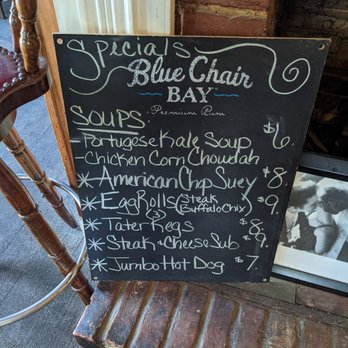 Specials
Blue Chair
BAY
Premium Rum
SOUPS:
- Portugese Kale Soup $6.
- Chicken Corn Chowdah
* American Chop Suey $8
* Egg Rolls (Steak Buffalo Chix) $9
(3)
* Tater Kegs $8.
* Steak & Cheese Sub $9.
* Jumbo Hot Dog $7.